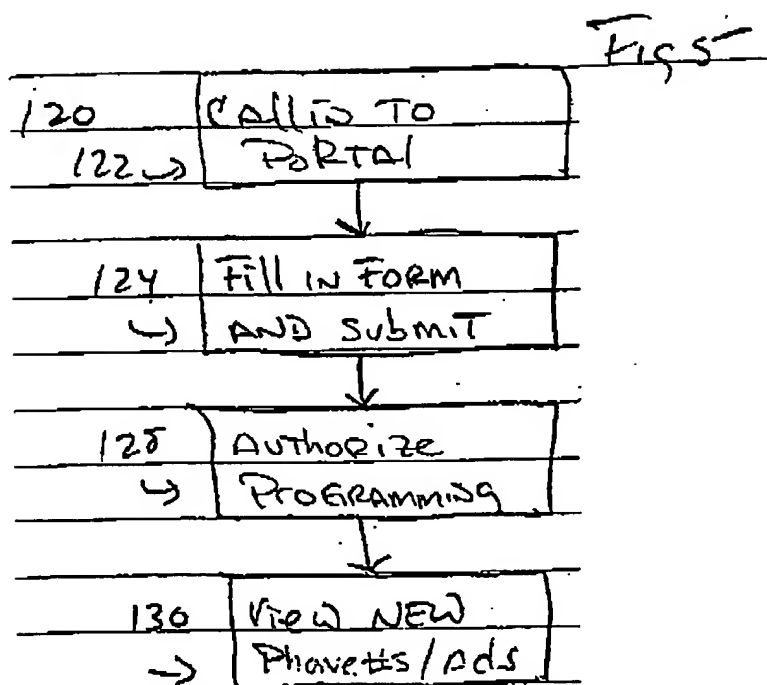 Fig 5
120 Call in To
122 Portal
124 Fill in Form
And Submit
Authorize
Programming
130 View New
/ Ads